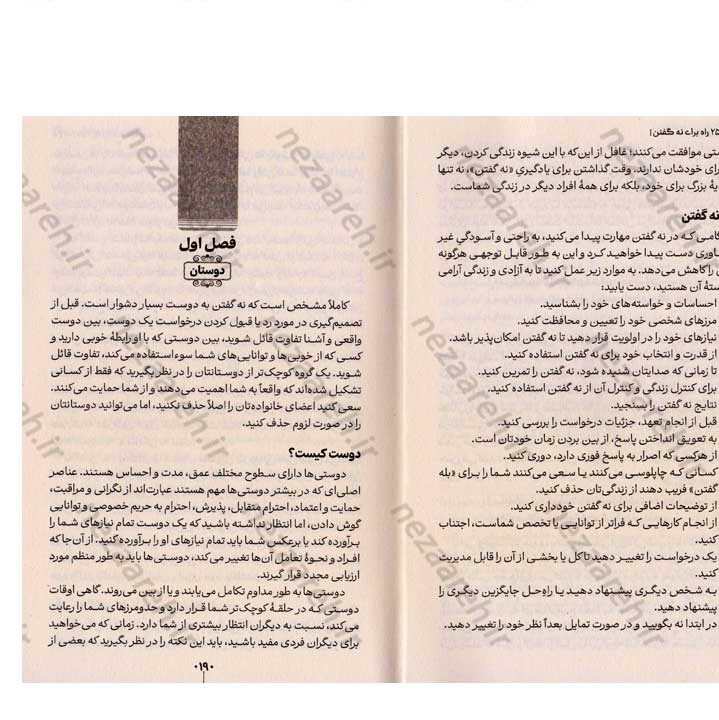 ۲۵ راه برای نه گفتن |
متی موافقت می‌کنند؛ غافل از این‌که با این شیوه زندگی کردن، دیگر
رای خودشان ندارند. وقت گذاشتن برای یادگیری «نه گفتن»، نه تنها
یهٔ بزرگ برای خود، بلکه برای همهٔ افراد دیگر در زندگی شماست.
نه گفتن
گامی که در نه گفتن مهارت پیدا می‌کنید، به راحتی و آسودگیِ غیر
باوری دست پیدا خواهید کرد و این به طور قابل توجهی هرگونه
را کاهش می‌دهد. به موارد زیر عمل کنید تا به آزادی و زندگی آرامی
ستهٔ آن هستید، دست یابید:
احساسات و خواسته‌های خود را بشناسید.
مرزهای شخصی خود را تعیین و محافظت کنید.
نیازهای خود را در اولویت قرار دهید تا نه گفتن امکان‌پذیر باشد.
از قدرت و انتخاب خود برای نه گفتن استفاده کنید.
تا زمانی که صدایتان شنیده شود، نه گفتن را تمرین کنید.
برای کنترل زندگی و کنترل آن از نه گفتن استفاده کنید.
نتایج نه گفتن را بسنجید.
قبل از انجام تعهد، جزئیات درخواست را بررسی کنید.
به تعویق انداختن پاسخ، از بین بردن زمان خودتان است.
از هرکسی که اصرار به پاسخ فوری دارد، دوری کنید.
کسانی که چاپلوسی می‌کنند یا سعی می‌کنند شما را برای «بله
گفتن» فریب دهند از زندگی‌تان حذف کنید.
از توضیحات اضافی برای نه گفتن خودداری کنید.
از انجام کارهایی که فراتر از توانایی یا تخصص شماست، اجتناب
کنید.
یک درخواست را تغییر دهید تا کل یا بخشی از آن را قابل مدیریت
کنید.
به شخص دیگری پیشنهاد دهید یا راه‌حل جایگزین دیگری را
پیشنهاد دهید.
در ابتدا نه بگویید و در صورت تمایل بعداً نظر خود را تغییر دهید.
فصل اول
دوستان
کاملاً مشخص است که نه گفتن به دوست بسیار دشوار است. قبل از
تصمیم‌گیری در مورد رد یا قبول کردن درخواست یک دوست، بین دوست
واقعی و آشنا تفاوت قائل شوید، بین دوستی که با او رابطهٔ خوبی دارید و
کسی که از خوبی‌ها و توانایی‌های شما سوءاستفاده می‌کند، تفاوت قائل
شوید. یک گروه کوچک‌تر از دوستانتان را در نظر بگیرید که فقط از کسانی
تشکیل شده‌اند که واقعاً به شما اهمیت می‌دهند و از شما حمایت می‌کنند.
سعی کنید اعضای خانواده‌تان را اصلاً حذف نکنید، اما می‌توانید دوستانتان
را در صورت لزوم حذف کنید.
دوست کیست؟
دوستی‌ها دارای سطوح مختلف عمق، مدت و احساس هستند. عناصر
اصلی‌ای که در بیشتر دوستی‌ها مهم هستند عبارت‌اند از نگرانی و مراقبت،
حمایت و اعتماد، احترام متقابل، پذیرش، احترام به حریم خصوصی و توانایی
گوش دادن، اما انتظار نداشته باشید که یک دوست تمام نیازهای شما را
برآورده کند یا برعکس شما باید تمام نیازهای او را برآورده کنید. از آن‌جا که
افراد و نحوهٔ تعامل آن‌ها تغییر می‌کند، دوستی‌ها باید به طور منظم مورد
ارزیابی مجدد قرار گیرند.
دوستی‌ها به طور مداوم تکامل می‌یابند و یا از بین می‌روند. گاهی اوقات
دوستی که در حلقهٔ کوچک‌تر شما قرار دارد و حدومرزهای شما را رعایت
می‌کند، نسبت به دیگران انتظار بیشتری از شما دارد. زمانی که می‌خواهید
برای دیگران فردی مفید باشید، باید این نکته را در نظر بگیرید که بعضی از
۰۱۹۰
nezaareh.ir